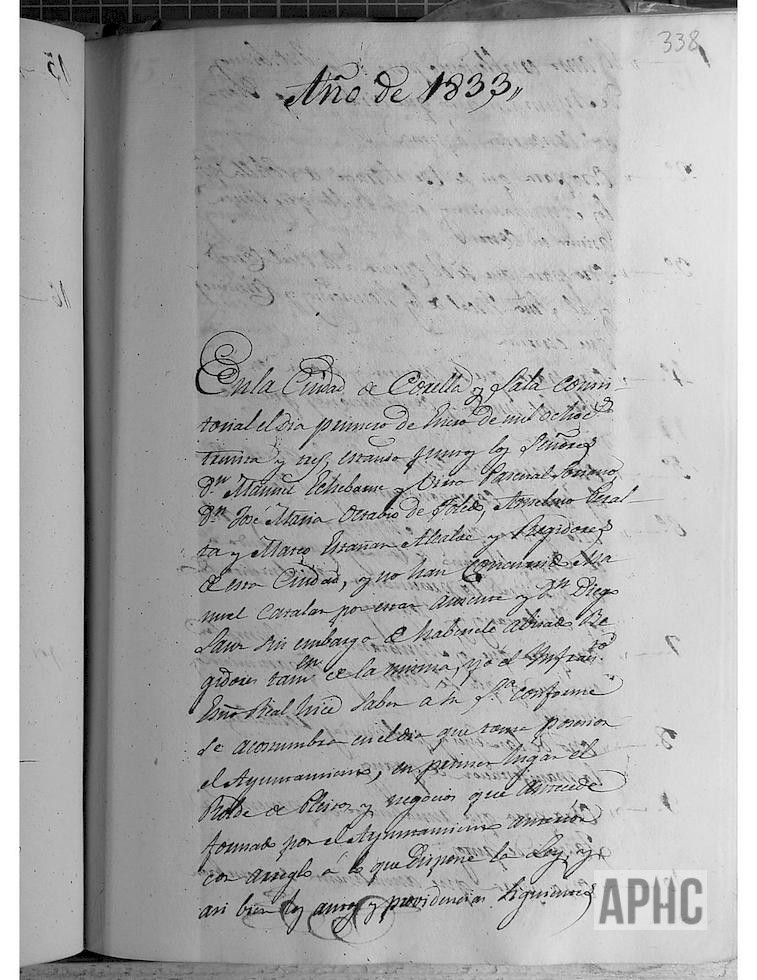 338
Año de 1833,,
En la Ciudad de Corella y Sala consis-
torial el dia primero de Enero de mil ochoc.s
treinta y tres estando juntos los Señores
D.n Manuel Echebarre y Pascual
D.n Jose Maria Octabio de Toledo, Anselmo Peral-
ta y Marco Estañan Alcalde y Regidores
de esta Ciudad, y no han concurrido Ma
nuel Catalan por estar ausente y D.n Diego
sin embargo de habersele abisado Re
gidores tam.en de la misma, yo el Infraes.to
Esno Real hice saber a su S.ria conforme
se acostumbra en el dia que toma posesion
el Ayuntamiento, en primer lugar el
Rolde de Pleitos y negocios que antecede
formado por el Ayuntamiento anterior
con arreglo á lo que dispone la Ley, y
asi bien los autos y providencias siguientes
15
16
APHC